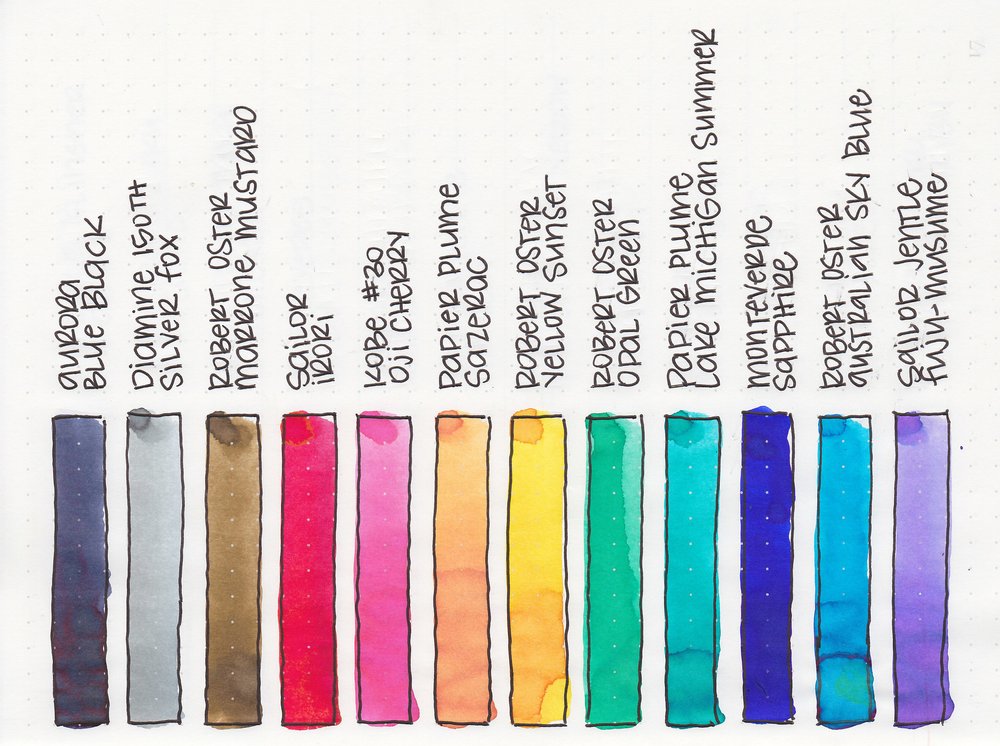 aurora
Blue Black
Diamine 150TH
Silver Fox
Robert Oster
Marrone Mustard
Sailor
Irori
Kobe #30
Oji Cherry
Papier Plume
Sazerac
Robert Oster
Yellow Sunset
Robert Oster
Opal Green
Papier Plume
Lake Michigan Summer
Monteverde
Sapphire
Robert Oster
Australian Sky Blue
Sailor Jentle
Fuji-Musume